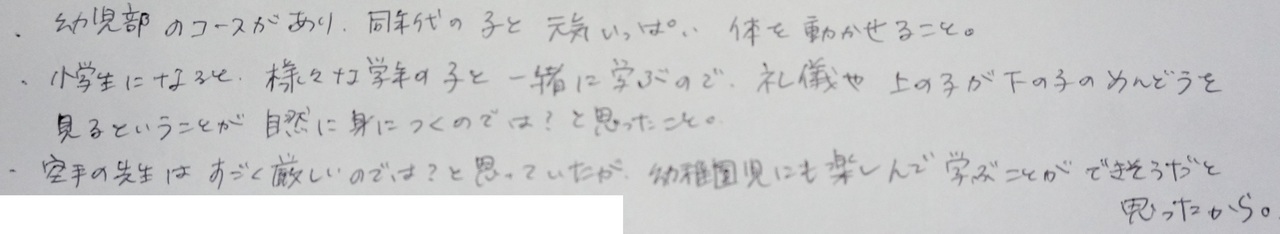 ・幼児部のコースがあり、同年代の子と元気いっぱい体を動かせること。
・小学生になると、様々な学年の子と一緒に学ぶので、礼儀や上の子が下の子のめんどうを
見るということが自然に身につくのでは?と思ったこと。
・空手の先生はすごく厳しいのでは?と思っていたが、幼稚園児にも楽しんで学ぶことができそうだと
思ったから。